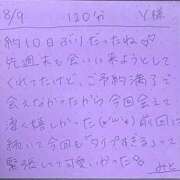 8/9 120分 V様
約10日ぶりだったね♡
先週末も会いに来ようとして
くれてたけど、ご予約満了で
会えなかったから今回会えて
凄く嬉しかった(*´ω`*)前回に
続いて今回も"タイプすぎる"って
緊張してて可愛いかった
みと